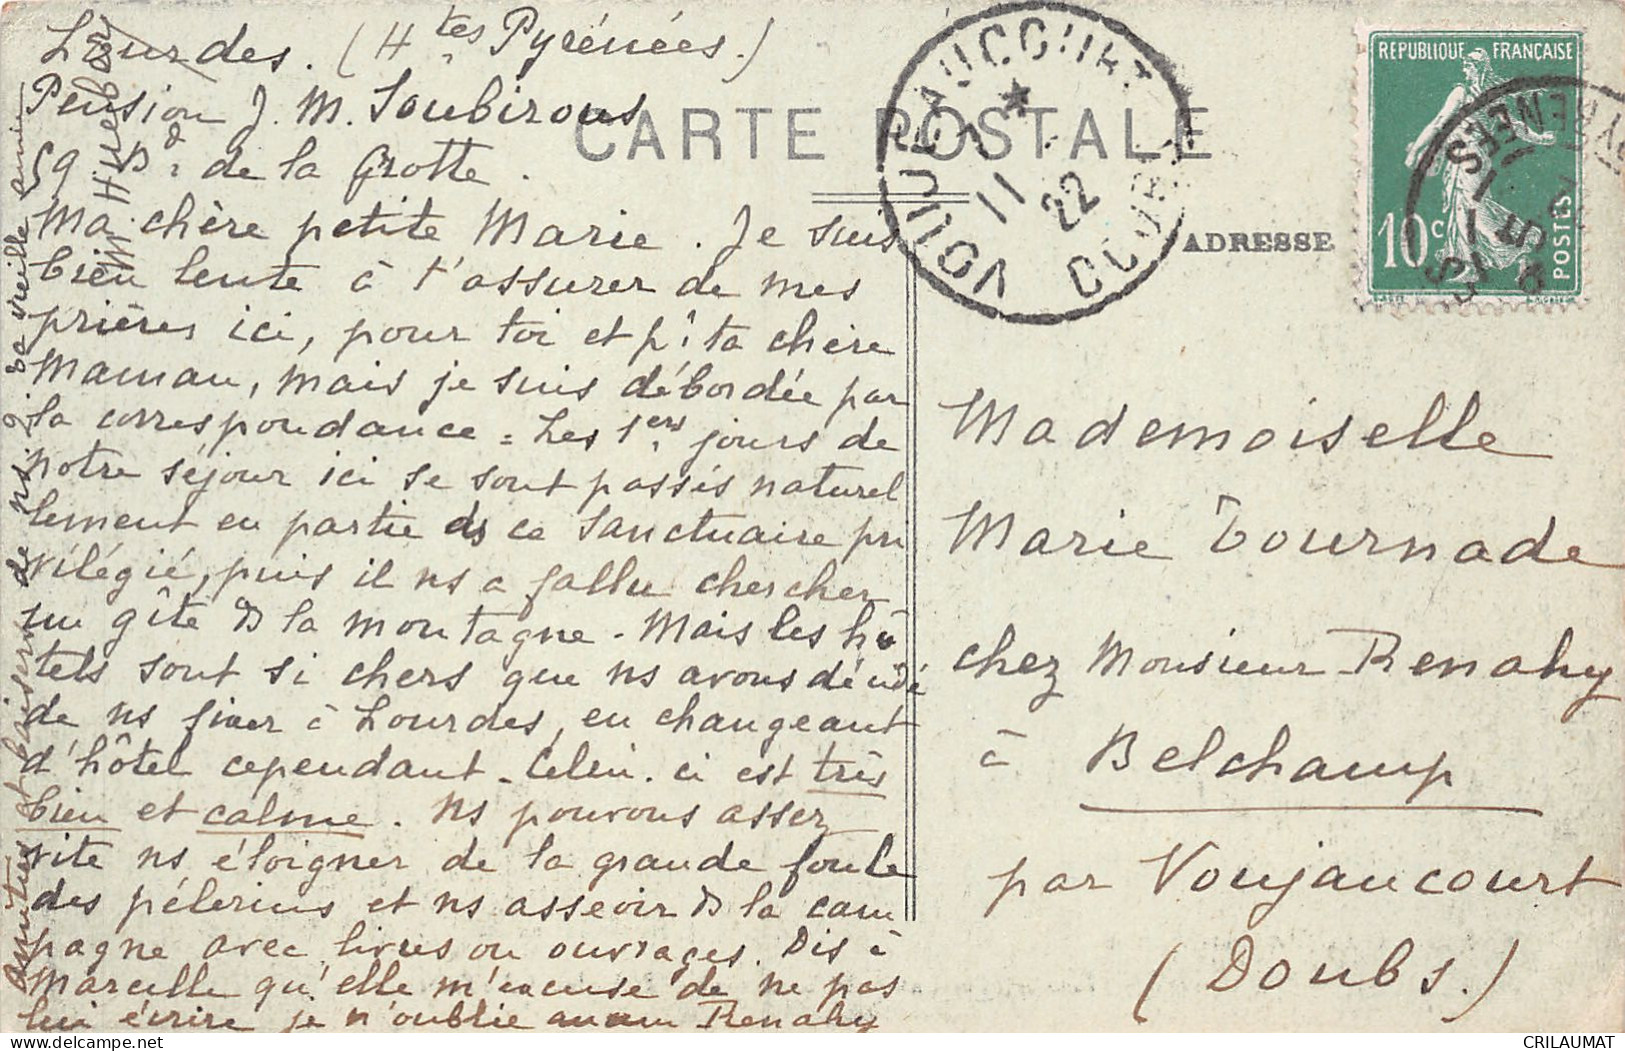 Lourdes. (Htes Pyrénées.)
Pension J. M. Soubirous
59 Bd de la Grotte.
Ma chère petite Marie. Je suis
bien lente à t'assurer de mes
prières ici, pour toi et pr ta chère
Maman, mais je suis débordée par
la correspondance = Les 1ers jours de
notre séjour ici se sont passés naturel
lement en partie ds ce sanctuaire pri
vilégié, puis il ns a fallu chercher
un gîte ds la montagne. Mais les hô
tels sont si chers que ns avons décidé
de ns fixer à Lourdes, en changeant
d'hôtel cependant. Celui-ci est très
bien et calme. Ns pouvons assez
vite ns éloigner de la grande foule
des pélerins et ns asseoir ds la cam
pagne avec livres ou ouvrages. Dis à
Marcelle qu'elle m'excuse de ne pas
lui écrire je n'oublie aucun Renahy
amitiés et baisers de ns 2. Ta vieille amie
M. Huebar
CARTE POSTALE
ADRESSE
Mademoiselle
Marie Tournade
chez Monsieur Renahy
à Belchamp
par Voujaucourt
(Doubs.)
VOUJEAUCOURT
DOUBS
11
22
REPUBLIQUE FRANÇAISE
10c
POSTES
PYRENEES
CRILAUMAT